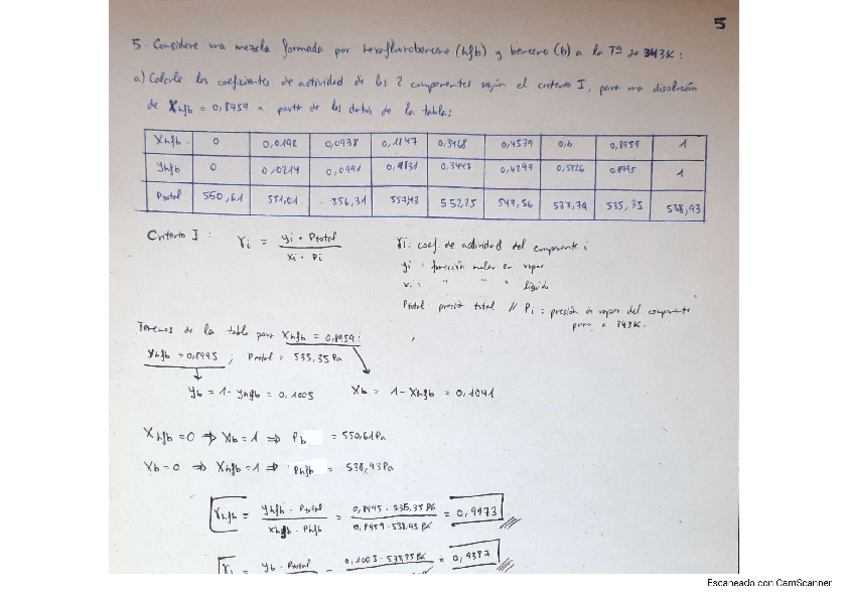 5
5. Considere una mezcla formada por hexafluorobenceno (hfb) y benceno (b) a la Tª de 343K:
a) Calcule los coeficientes de actividad de los 2 componentes según el criterio I, para una disolución
de Xhfb = 0,8959 a partir de los datos de la tabla:
Xhfb 0 0,0938 0,3468 0,4539 0,6 0,8959 1
Yhfb 0 0,0214 0,0991 0,3443 0,4299 0,8995 1
Ptotal 550,61 551,01 556,31 552,25 547,56 535,35 538,93
Criterio I: γi = yi · Ptotal / xi · Pi
γi: coef. de actividad del componente i
yi: fracción molar en vapor
xi: " " " líquido
Ptotal: presión total // Pi: presión de vapor del componente
puro a 343K.
Tenemos de la tabla para Xhfb = 0,8959:
Yhfb = 0,8995 ; Ptotal = 535,35 Pa
Yb = 1 - Yhfb = 0,1005 Xb = 1 - Xhfb = 0,1041
Xhfb = 0 ⇒ Xb = 1 ⇒ Pb = 550,61 Pa
Xb = 0 ⇒ Xhfb = 1 ⇒ Phfb = 538,93 Pa
γhfb = Yhfb · Ptotal / Xhfb · Phfb = 0,8995 · 535,35 Pa / 0,8959 · 538,93 Pa = 0,9973
Yb · Ptotal = 0,1005 · 535,35 Pa = 0,9387
Escaneado con CamScanner